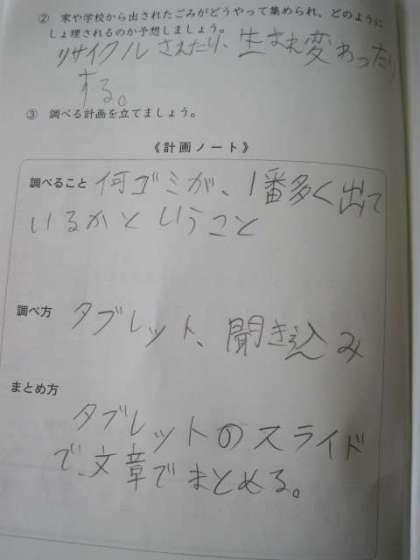 ② 家や学校から出されたごみがどうやって集められ，どのように
しょ理されるのか予想しましょう。
リサイクルされたり、生まれ変わったり
する。
③ 調べる計画を立てましょう。
《計画ノート》
調べること 何ゴミが、1番多く出て
いるかということ
調べ方 タブレット、聞き込み
まとめ方
タブレットのスライド
で、文章でまとめる。